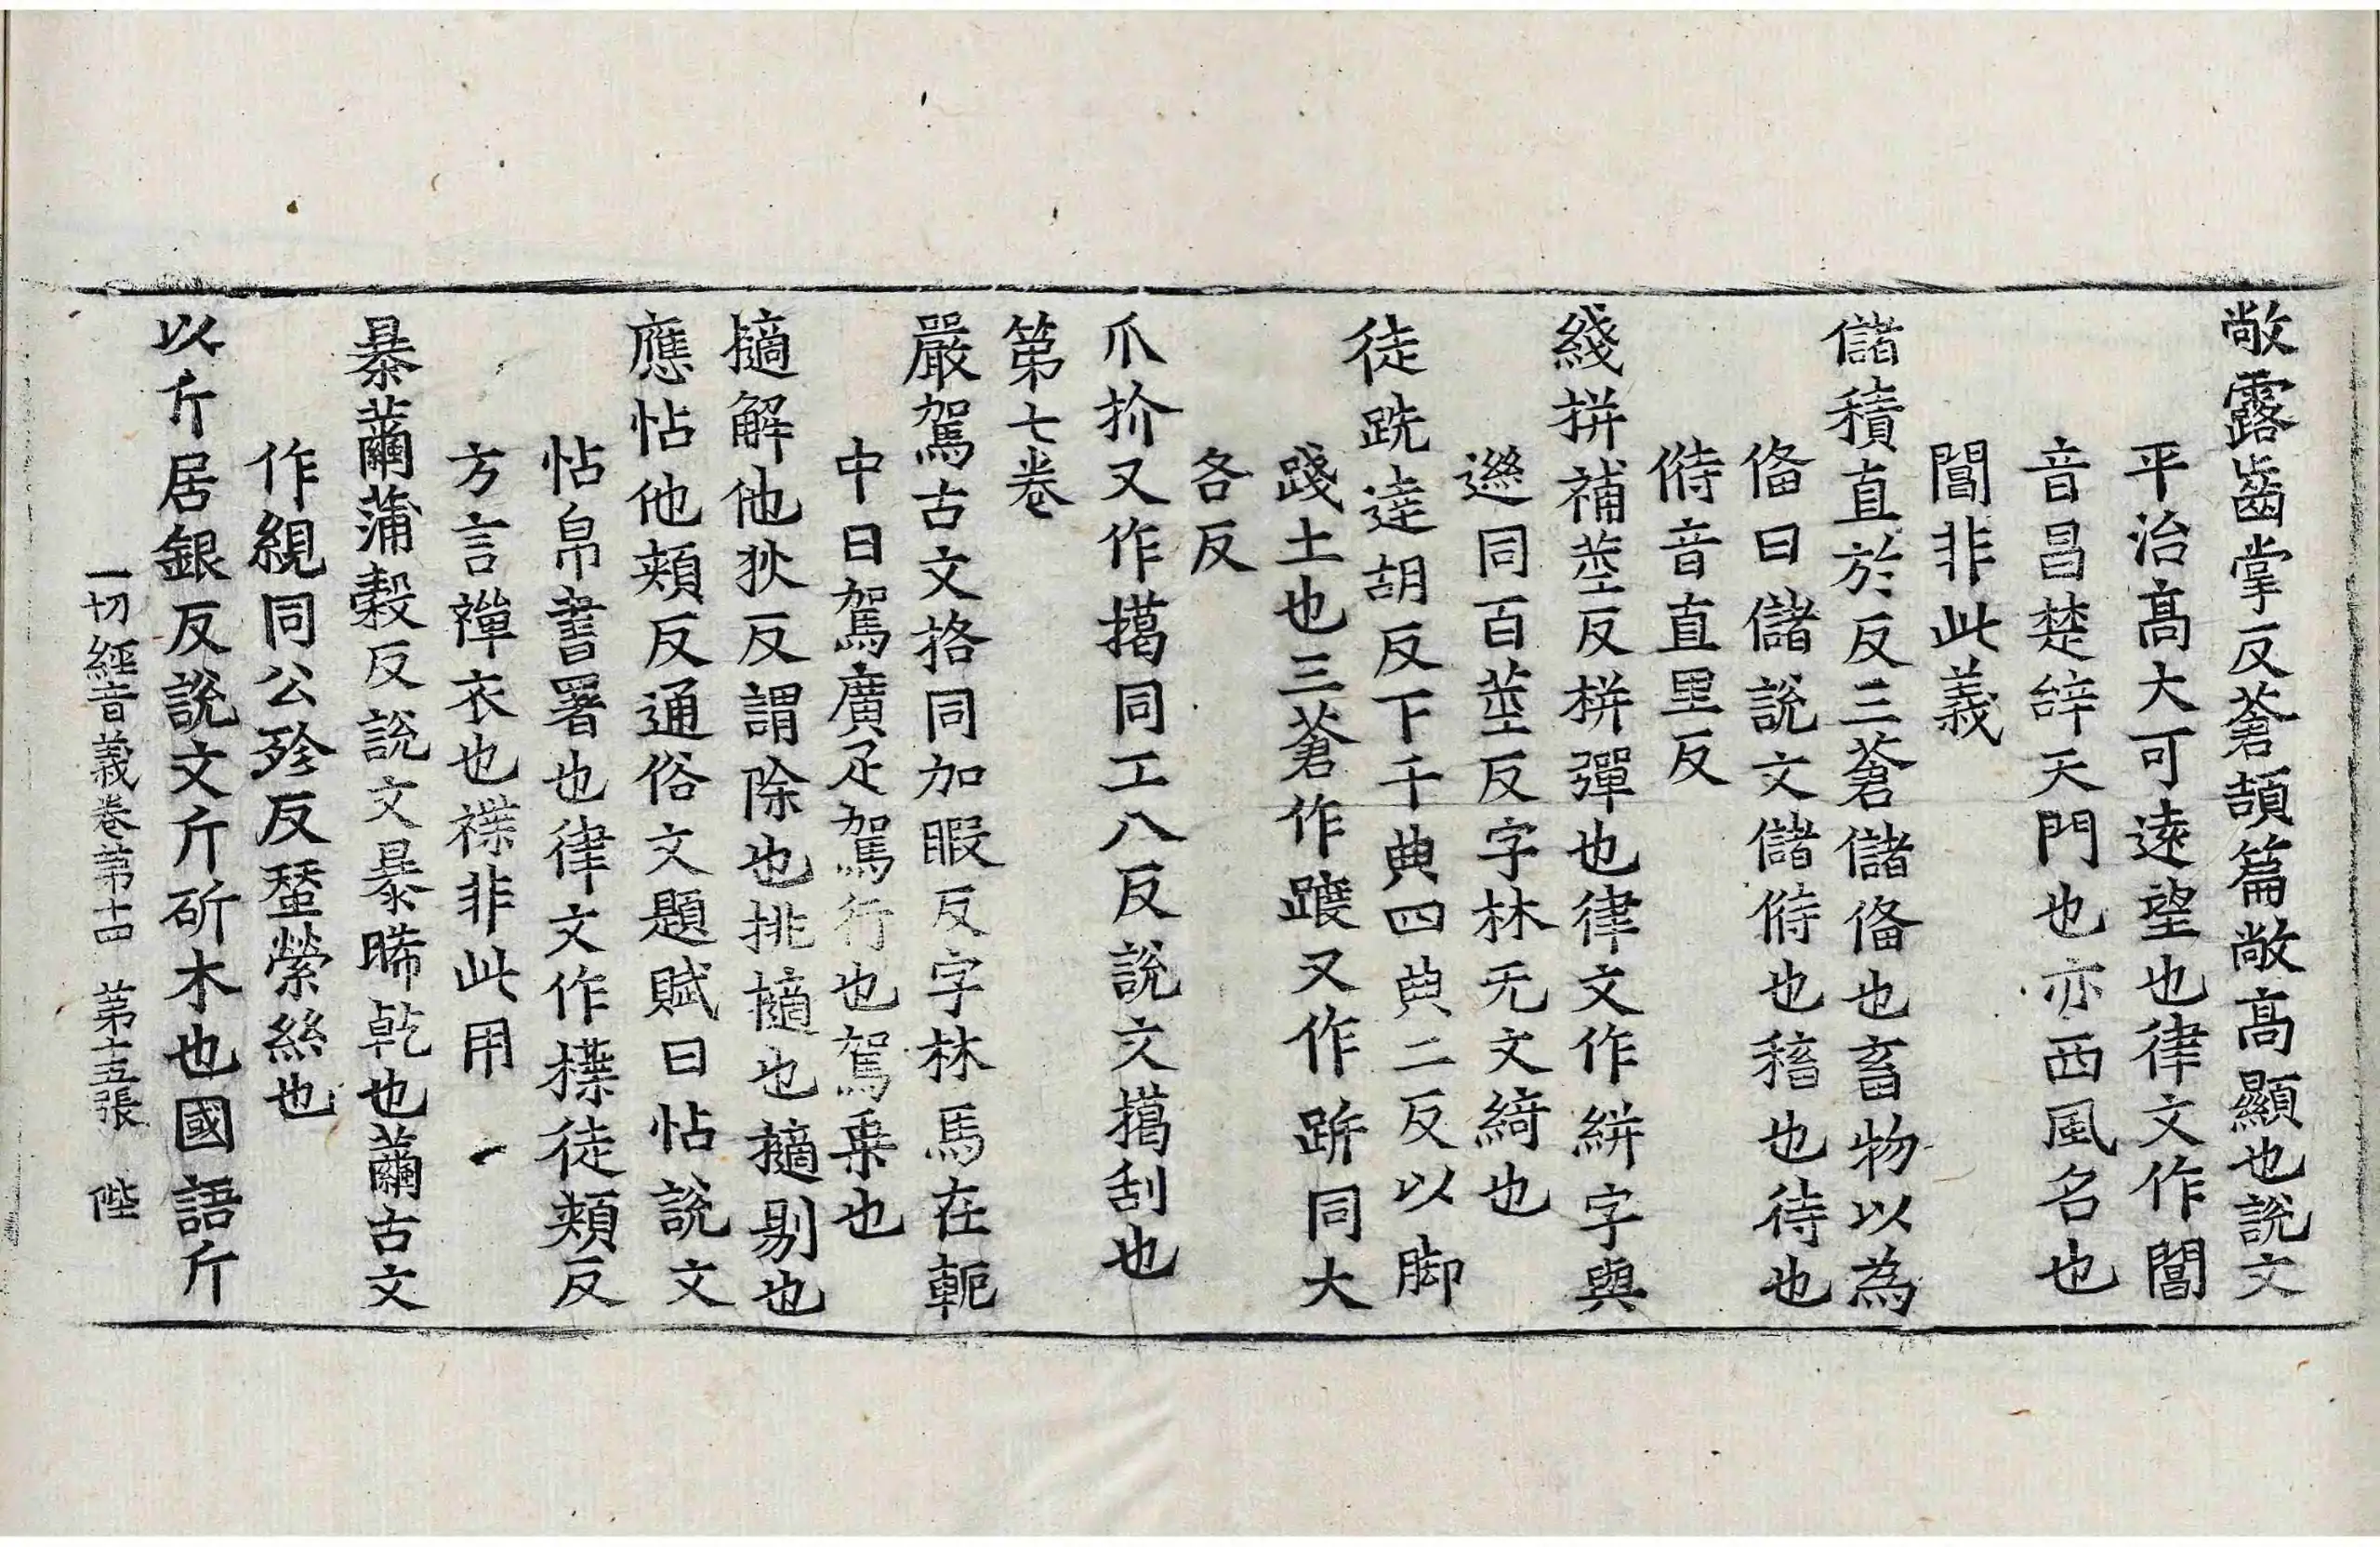 敞露齒掌反蒼頡篇敞高顯也說文
平治高大可遠望也律文作閶
音昌楚辝天門也亦西風名也
閶非此義
儲積直於反三蒼儲俻也畜物以為
俻曰儲說文儲偫也稸也待也
偫音直里反
綫拼補莖反栟彈也律文作絣字與
逰同百莖反字林无文綺也
徒跣達胡反下千典四典二反以脚
踐土也三蒼作踱又作跰同大
各反
爪扴又作擖同工八反說文擖刮也
第七卷
嚴駕古文挌同加暇反字林馬在軛
中曰駕廣疋駕行也駕乗也
擿解他狄反謂除也挑擿也擿剔也
應怗他頰反通俗文題賦曰怗說文
怗帛書署也律文作㩸徒頰反
方言襌衣也褋非此用
暴繭蒲穀反說文暴晞乾也繭古文
作絸同公殄反蠶縈絲也
以斤居銀反說文斤斫木也國語斤
一切經音義卷第十四 第十五張 陛